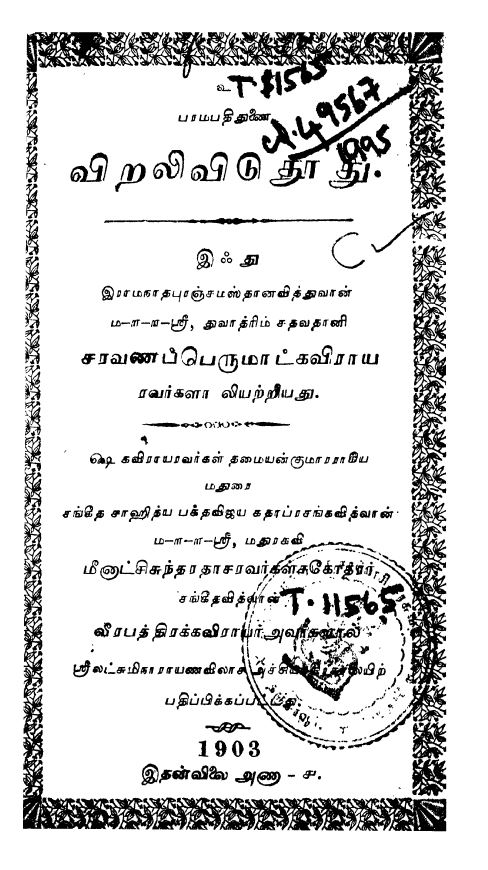 உ T. 11565
பரமபதிதுணை
cl. 49567
1995
விறலிவிடு தூது.
இஃது
இராமநாதபுரஞ்சமஸ்தானவித்துவான்
ம-ா-ா-ஸ்ரீ, துவாத்ரிம் சதவதானி
சரவணப்பெருமாட்கவிராய
ரவர்களா லியற்றியது.
ஷெ கவிராயரவர்கள் தமையன்குமாரராகிய
மதுரை
சங்கீத சாஹித்ய பக்தவிஜய கதாப்ரசங்கவித்வான்
ம-ா-ா-ஸ்ரீ, மதுரகவி
மீனாட்சிசுந்தரதாசரவர்கள்சகோதரர்
சங்கீதவித்வான்
T. 11565
வீரபத்திரக்கவிராயர் அவர்களால்
ஸ்ரீலட்சுமிநாராயணவிலாச அச்சியந்திரசாலையிற்
பதிப்பிக்கப்பட்டது.
1903
இதன்விலை அணா - ச.